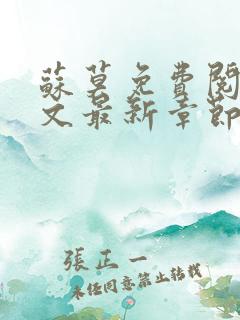 蘇莫免費閱
文最新章節
張正一
未經同意禁止轉載